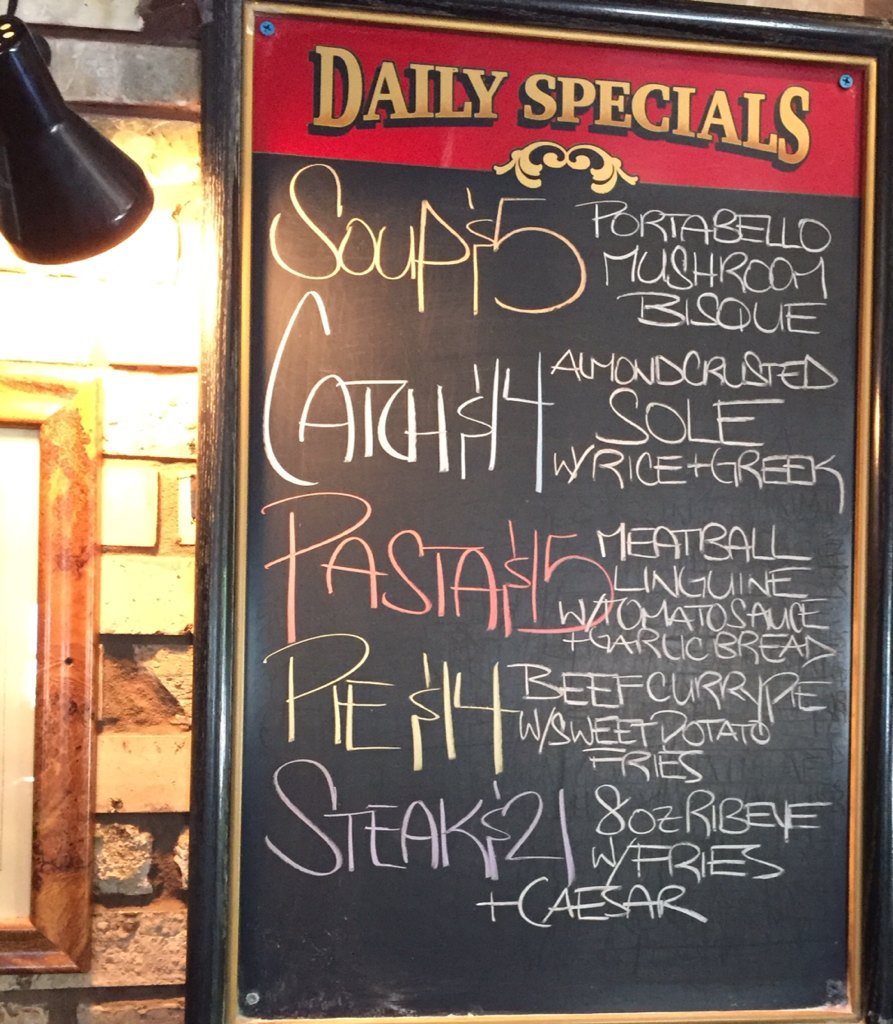 DAILY SPECIALS
SOUP $5 PORTABELLO
MUSHROOM
BISQUE
CATCH $14 ALMOND CRUSTED
SOLE
W/RICE + GREEK
PASTA $15 MEATBALL
LINGUINE
W/TOMATO SAUCE
+ GARLIC BREAD
PIE $14 BEEF CURRY PIE
W/SWEET POTATO
FRIES
STEAK $21 8OZ RIBEYE
W/FRIES
+ CAESAR